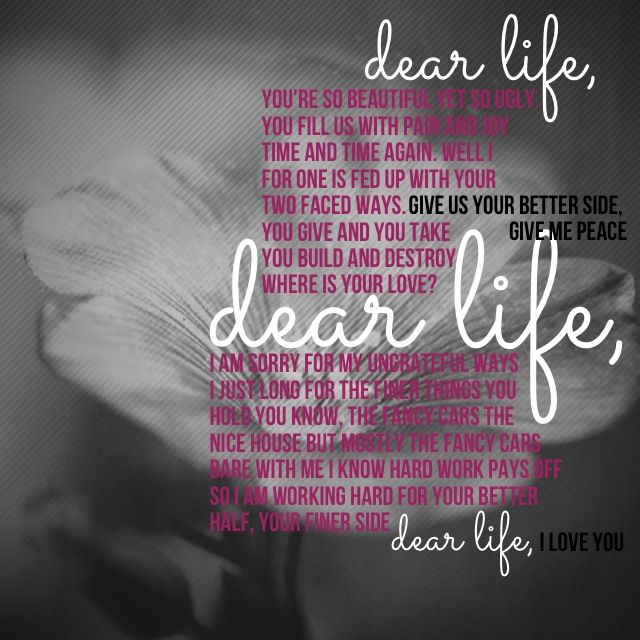 dear life,
YOU'RE SO BEAUTIFUL YET SO UGLY.
YOU FILL US WITH PAIN AND JOY
TIME AND TIME AGAIN. WELL I
FOR ONE IS FED UP WITH YOUR
TWO FACED WAYS. GIVE US YOUR BETTER SIDE,
YOU GIVE AND YOU TAKE GIVE ME PEACE
YOU BUILD AND DESTROY
WHERE IS YOUR LOVE?
dear life,
I AM SORRY FOR MY UNGRATEFUL WAYS
I JUST LONG FOR THE FINER THINGS YOU
HOLD YOU KNOW, THE FANCY CARS THE
NICE HOUSE BUT MOSTLY THE FANCY CARS
BARE WITH ME I KNOW HARD WORK PAYS OFF
SO I AM WORKING HARD FOR YOUR BETTER
HALF, YOUR FINER SIDE
dear life, I LOVE YOU